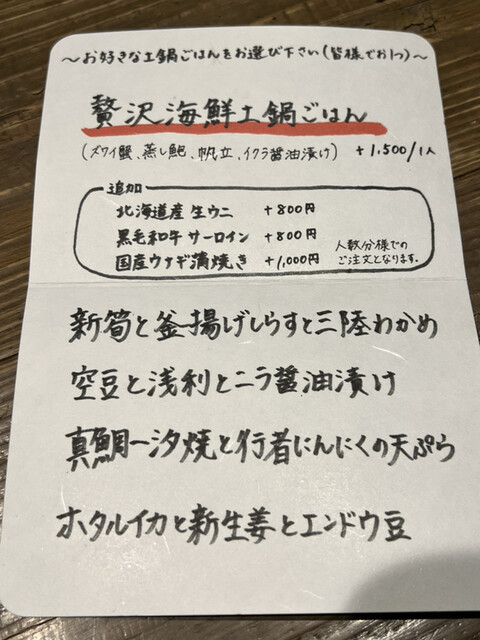 ～お好きな土鍋ごはんをお選び下さい(皆様でお1つ)～
贅沢海鮮土鍋ごはん
(ズワイ蟹、蒸し鮑、帆立、イクラ醤油漬け) +1,500/1人
追加
北海道産 生ウニ +800円
黒毛和牛 サーロイン +800円
国産ウナギ蒲焼き +1,000円 人数分様でのご注文となります。
新筍と釜揚げしらすと三陸わかめ
空豆と浅利とニラ醤油漬け
真鯛一汐焼と行者にんにくの天ぷら
ホタルイカと新生姜とエンドウ豆